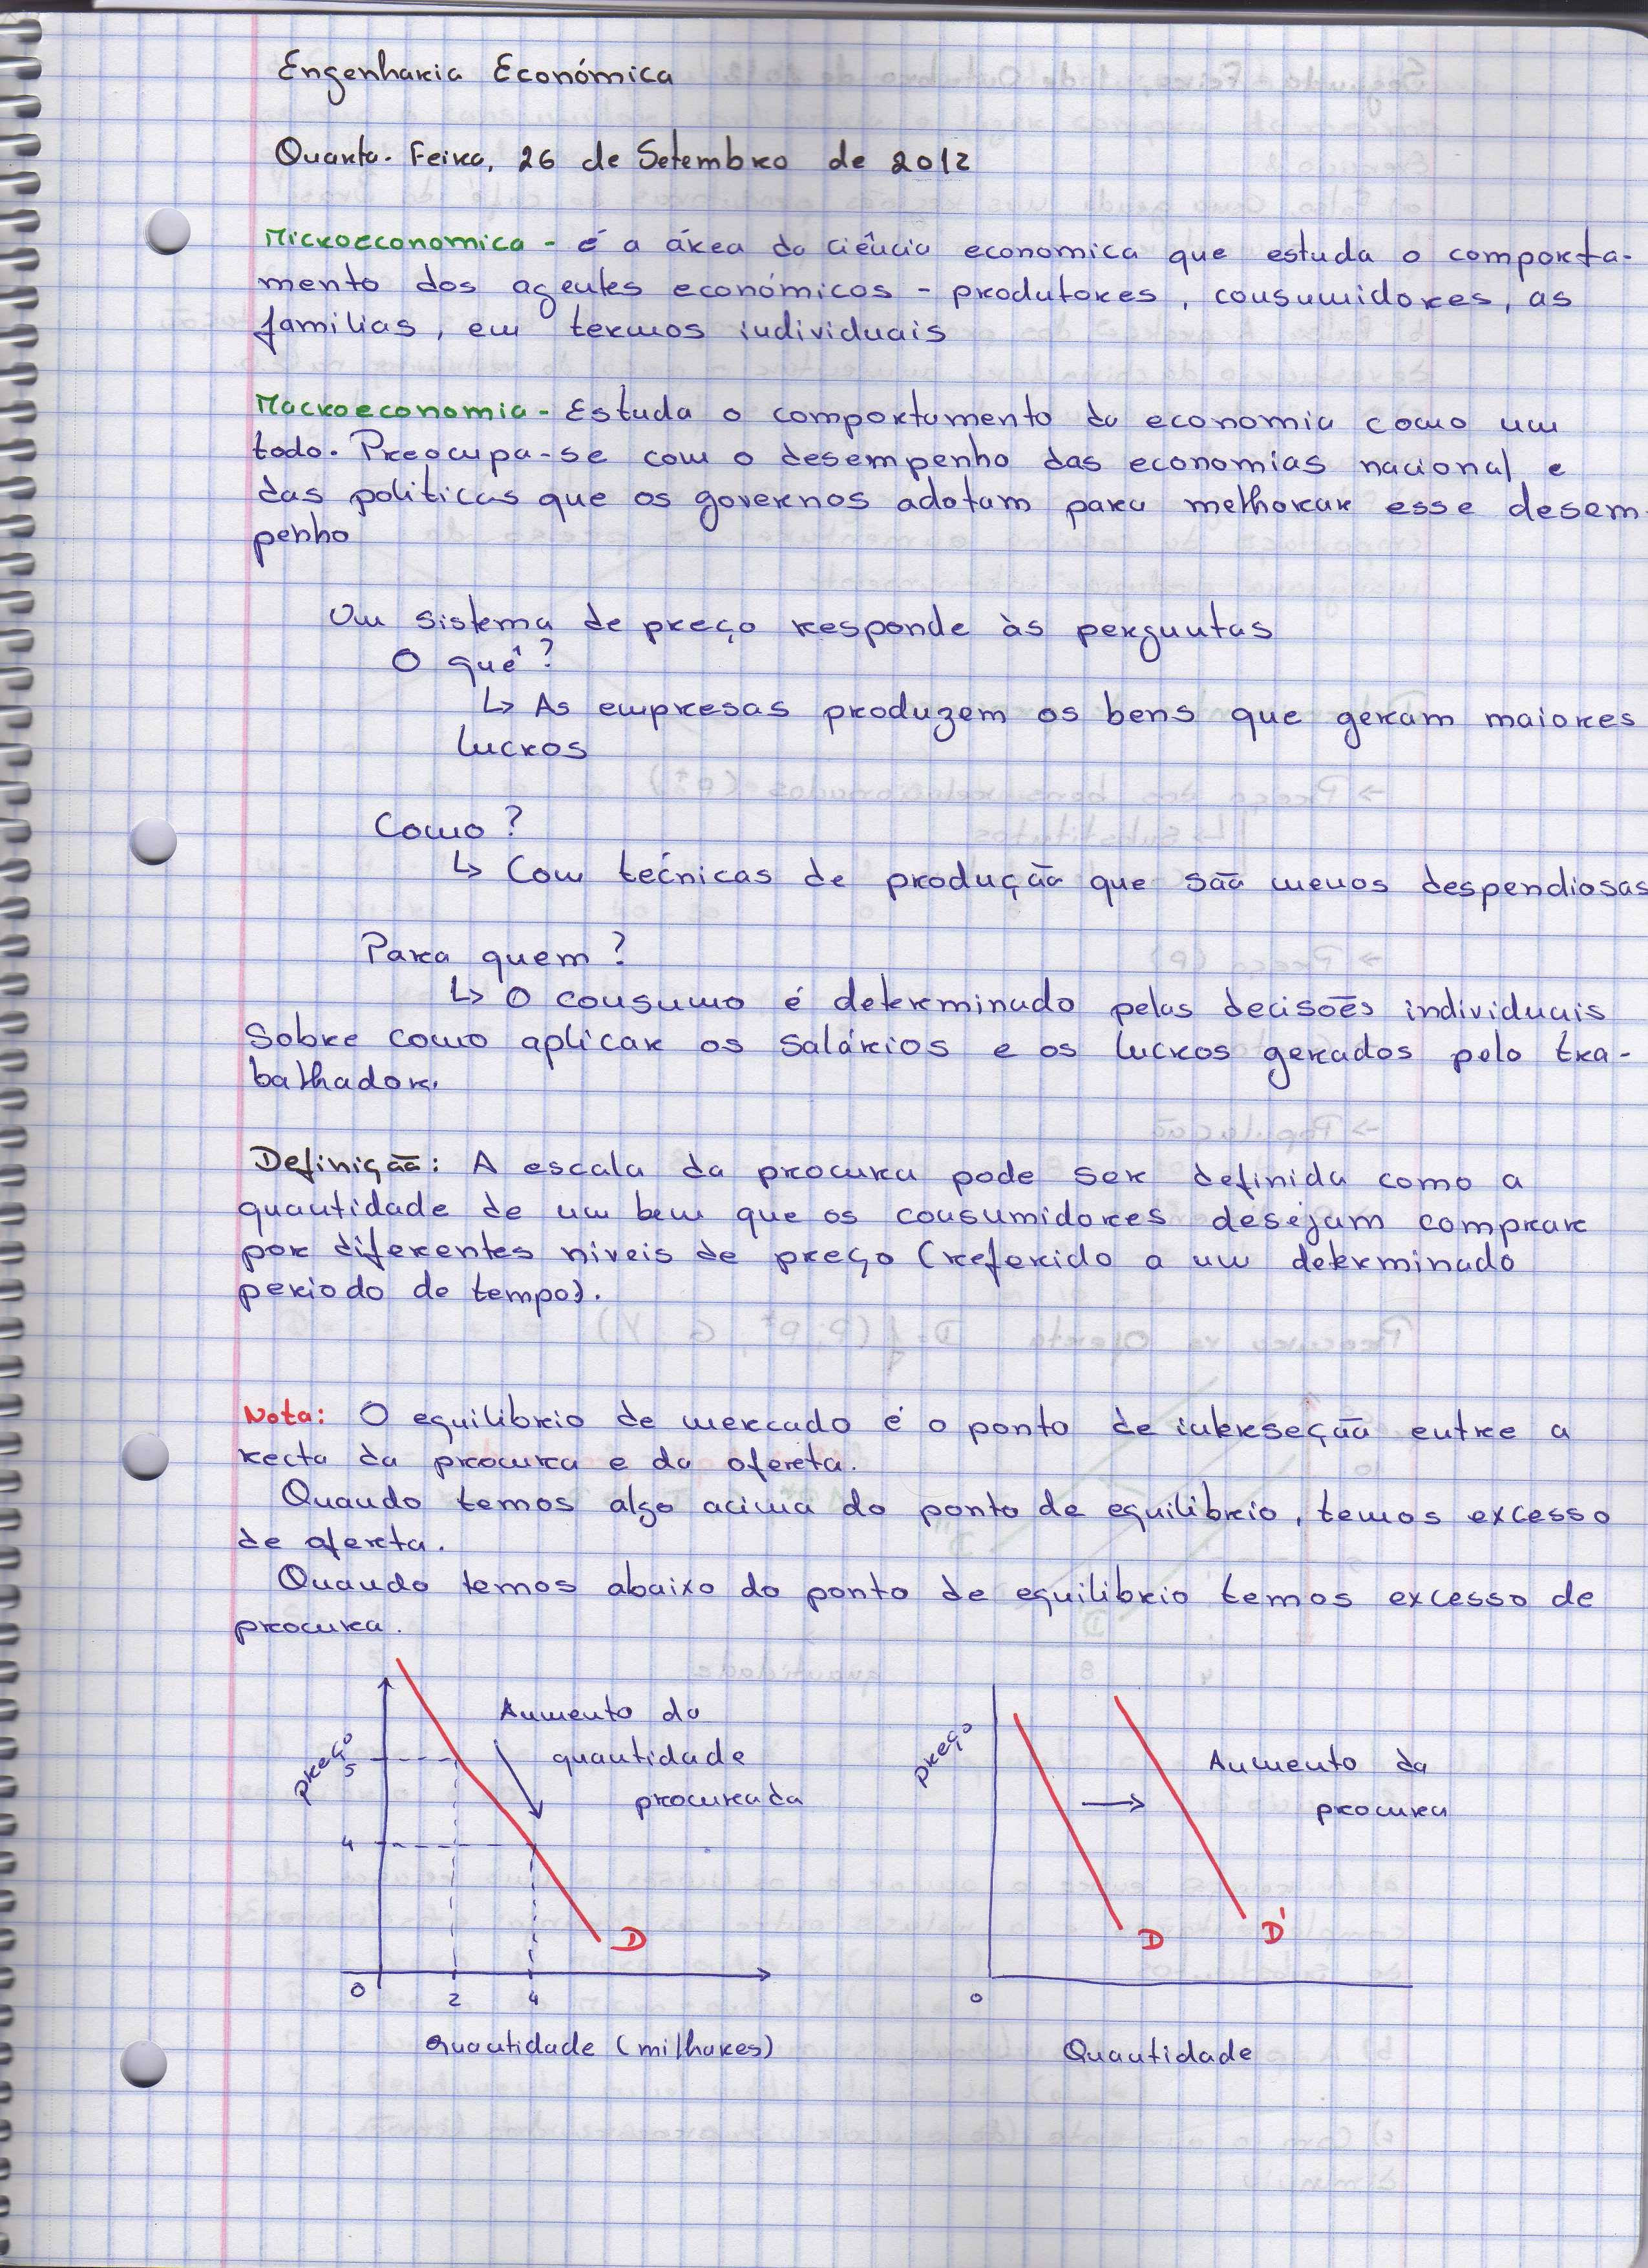 Engenharia Económica
Quarta-Feira, 26 de Setembro de 2012
Microeconomica - é a área da ciência economica que estuda o comporta-
mento dos agentes económicos - produtores, consumidores, as
famílias, em termos individuais
Macroeconomia - Estuda o comportamento da economia como um
todo. Preocupa-se com o desempenho das economias nacional e
das politicas que os governos adotam para melhorar esse desem-
penho
Um sistema de preço responde às perguntas
O quê?
↳ As empresas produzem os bens que geram maiores
lucros
Como?
↳ Com tecnicas de produção que são menos despendiosas
Para quem?
↳ O consumo é determinado pelas decisões individuais
Sobre como aplicar os salários e os lucros gerados pelo tra-
balhador.
Definição: A escala da procura pode ser definida como a
quantidade de um bem que os consumidores desejam comprar
por diferentes níveis de preço (referido a um determinado
periodo de tempo).
Nota: O equilibrio de mercado é o ponto de interseção entre a
recta da procura e da oferta.
Quando temos algo acima do ponto de equilibrio, temos excesso
de oferta.
Quando temos abaixo do ponto de equilibrio temos excesso de
procura.
Aumento da
quantidade
procurada
preço
5
4
D
0
2
4
quantidade (milhares)
preço
Aumento da
procura
D
D'
0
Quantidade